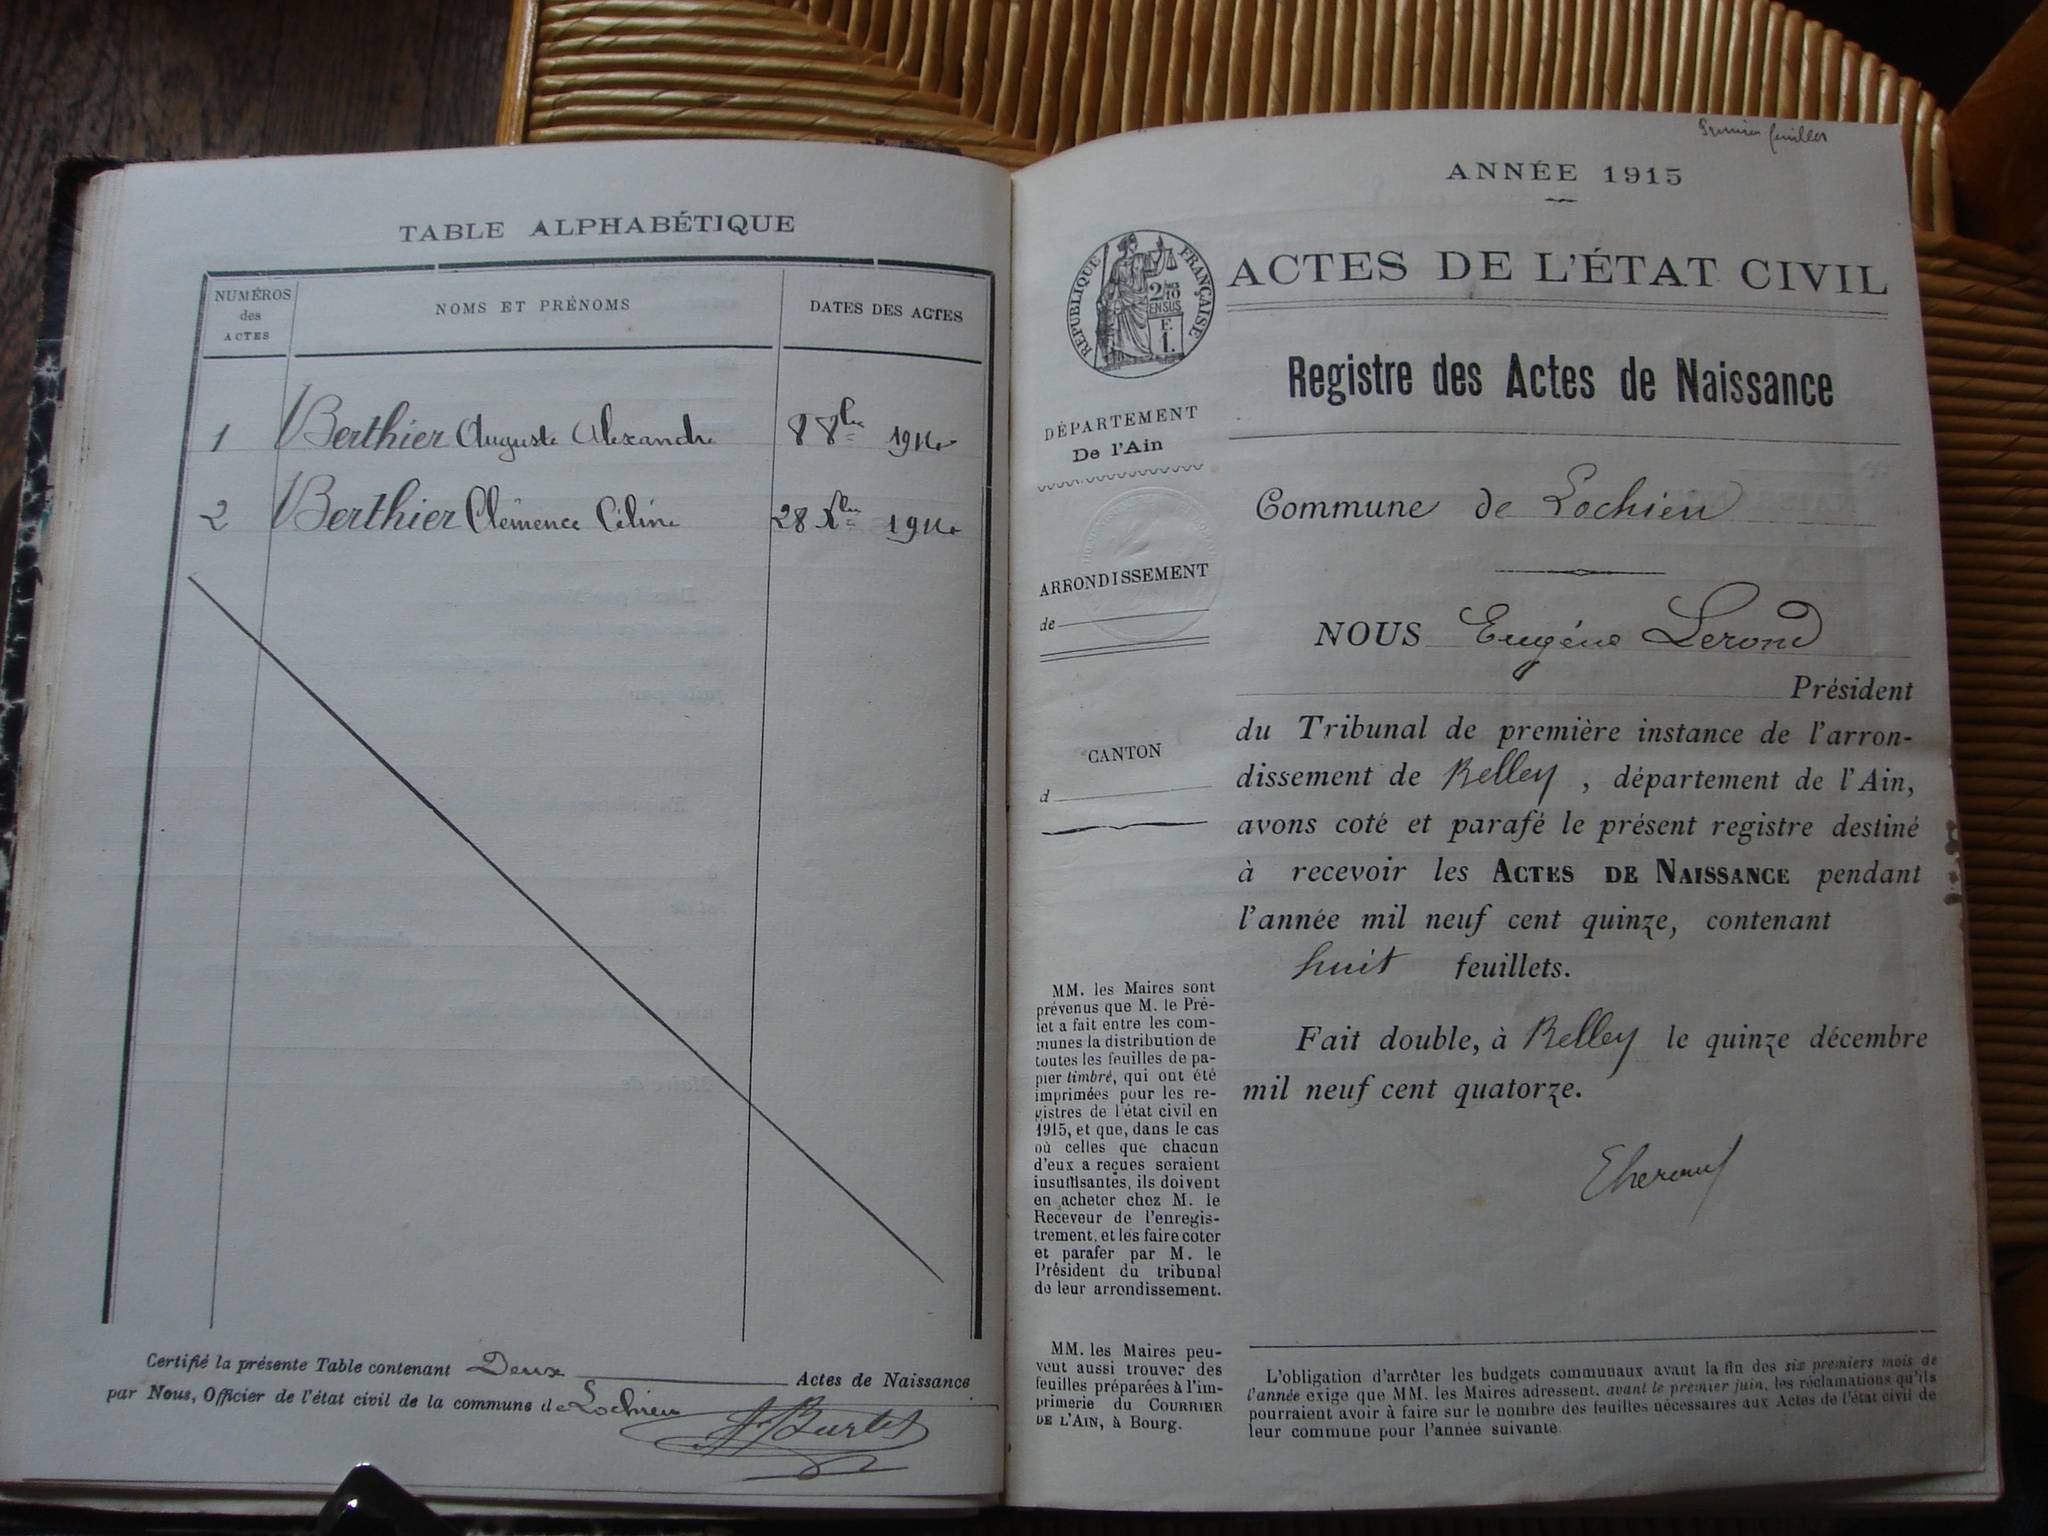 TABLE ALPHABÉTIQUE
NUMÉROS
des
ACTES
NOMS ET PRÉNOMS
DATES DES ACTES
1 Berthier Auguste Alexandre 8 8bre 1914
2 Berthier Clémence Céline 28 Xbre 1914
Certifié la présente Table contenant Deux Actes de Naissance
par Nous, Officier de l'état civil de la commune de Lochieu
Premier feuillet
ANNÉE 1915
RÉPUBLIQUE FRANÇAISE
2/10
EN SUS
F.
1.
ACTES DE L'ÉTAT CIVIL
Registre des Actes de Naissance
DÉPARTEMENT
De l'Ain
ARRONDISSEMENT
de
CANTON
d
MM. les Maires sont
prévenus que M. le Pré-
fet a fait entre les com-
munes la distribution de
toutes les feuilles de pa-
pier timbré, qui ont été
imprimées pour les re-
gistres de l'état civil en
1915, et que, dans le cas
où celles que chacun
d'eux a reçues seraient
insuffisantes, ils doivent
en acheter chez M. le
Receveur de l'enregis-
trement, et les faire coter
et parafer par M. le
Président du tribunal
de leur arrondissement.
MM. les Maires peu-
vent aussi trouver des
feuilles préparées à l'im-
primerie du COURRIER
DE L'AIN, à Bourg.
Commune de Lochieu
NOUS Eugène Lerond
Président
du Tribunal de première instance de l'arron-
dissement de Belley, département de l'Ain,
avons coté et parafé le présent registre destiné
à recevoir les ACTES DE NAISSANCE pendant
l'année mil neuf cent quinze, contenant
huit feuillets.
Fait double, à Belley le quinze décembre
mil neuf cent quatorze.
L'obligation d'arrêter les budgets communaux avant la fin des six premiers mois de
l'année exige que MM. les Maires adressent, avant le premier juin, les réclamations qu'ils
pourraient avoir à faire sur le nombre des feuilles nécessaires aux Actes de l'état civil de
leur commune pour l'année suivante